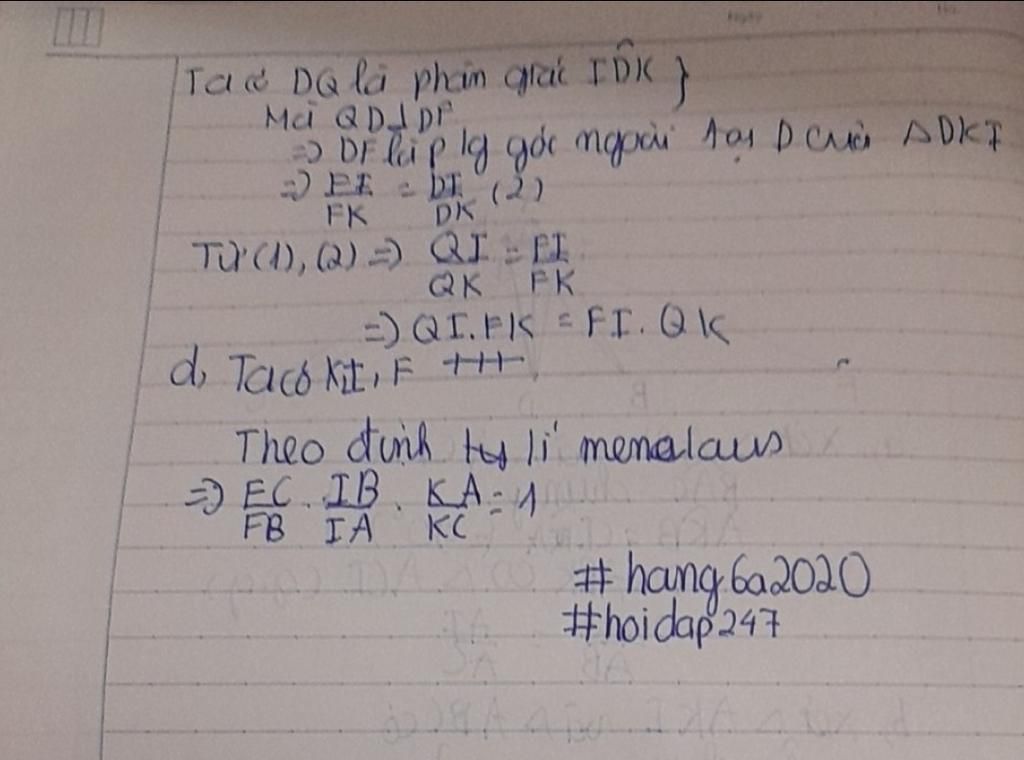 Ta có DQ là phân giác IDK }
Mà QD⊥DF
=> DF là p/g góc ngoài tại D của △DKI
=> FI/FK = DI/DK (2)
Từ (1), (2) => QI/QK = FI/FK
=> QI.FK = FI.QK
d, Ta có K,I,F +++
Theo định lí menelaus
=> FC/FB . IB/IA . KA/KC = 1
# hang6a2020
#hoidap247